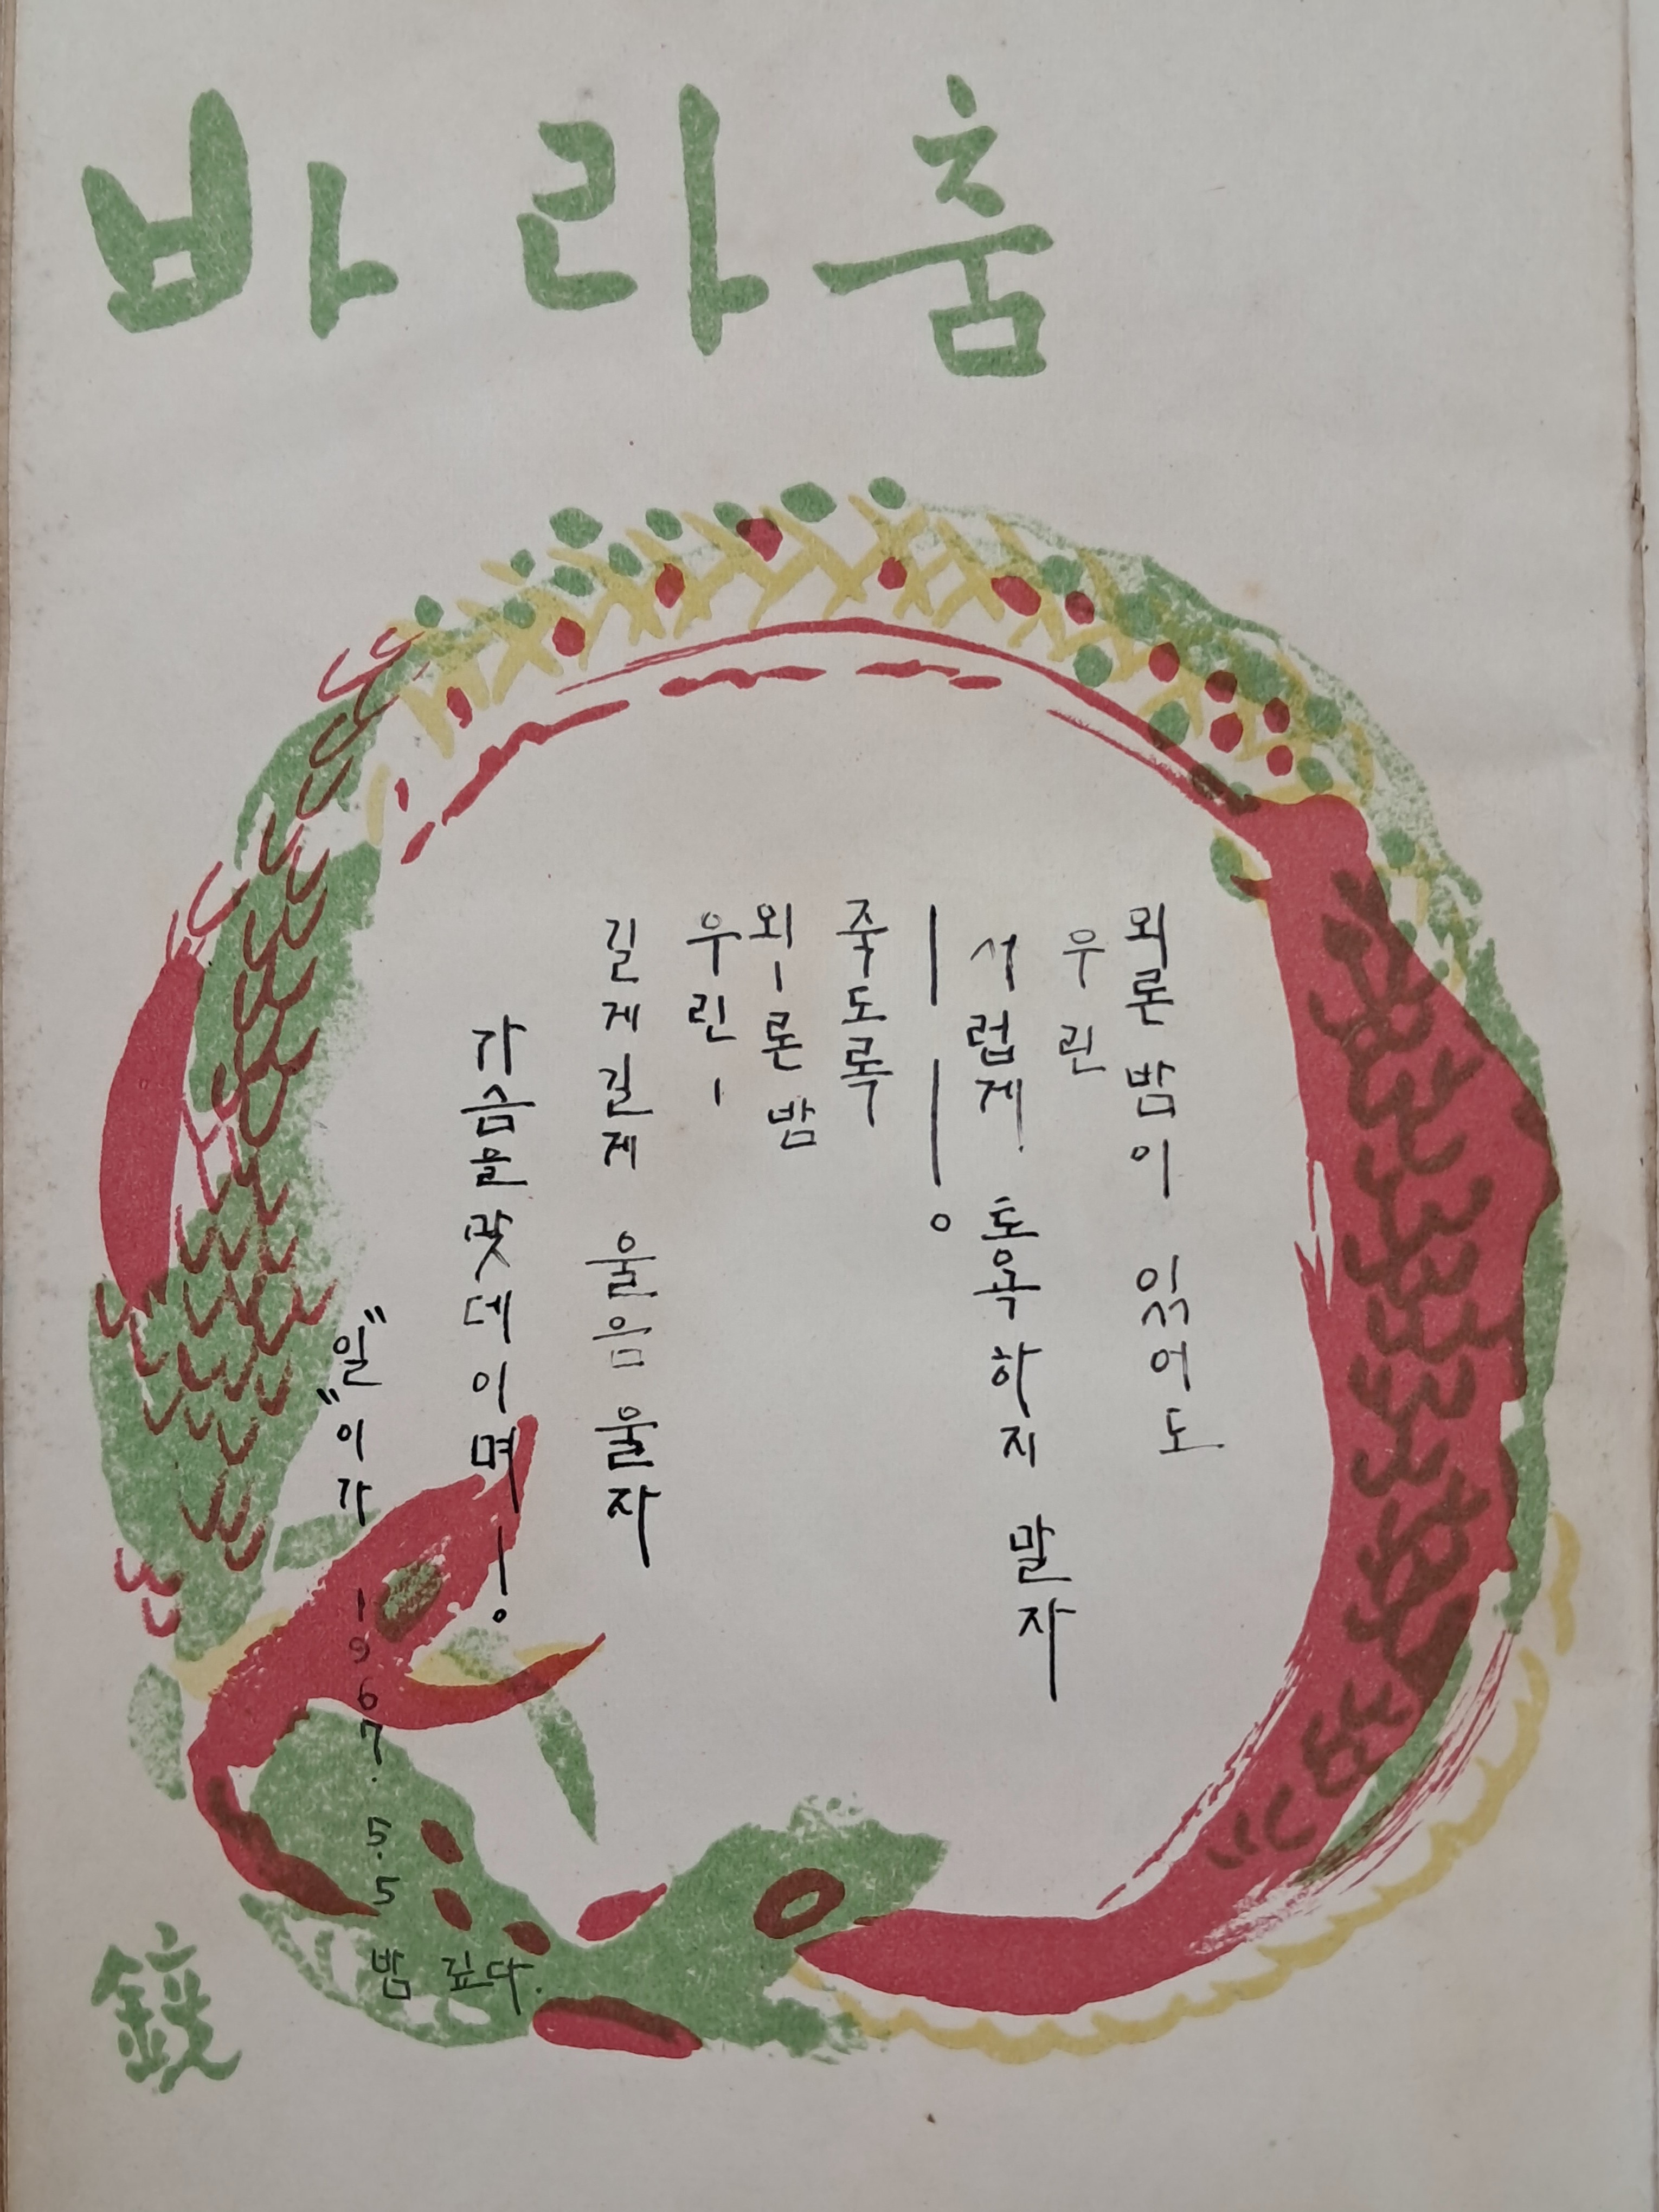 바라춤
외론 밤이 있어도
우린
서럽게 토욕하지 말자
— —。
죽도록
외-론 밤
우린-
길게길게 울음 울자
가슴을 맞데이며—。
"일"이가 1967. 5.5
밤 깊다.
鏡